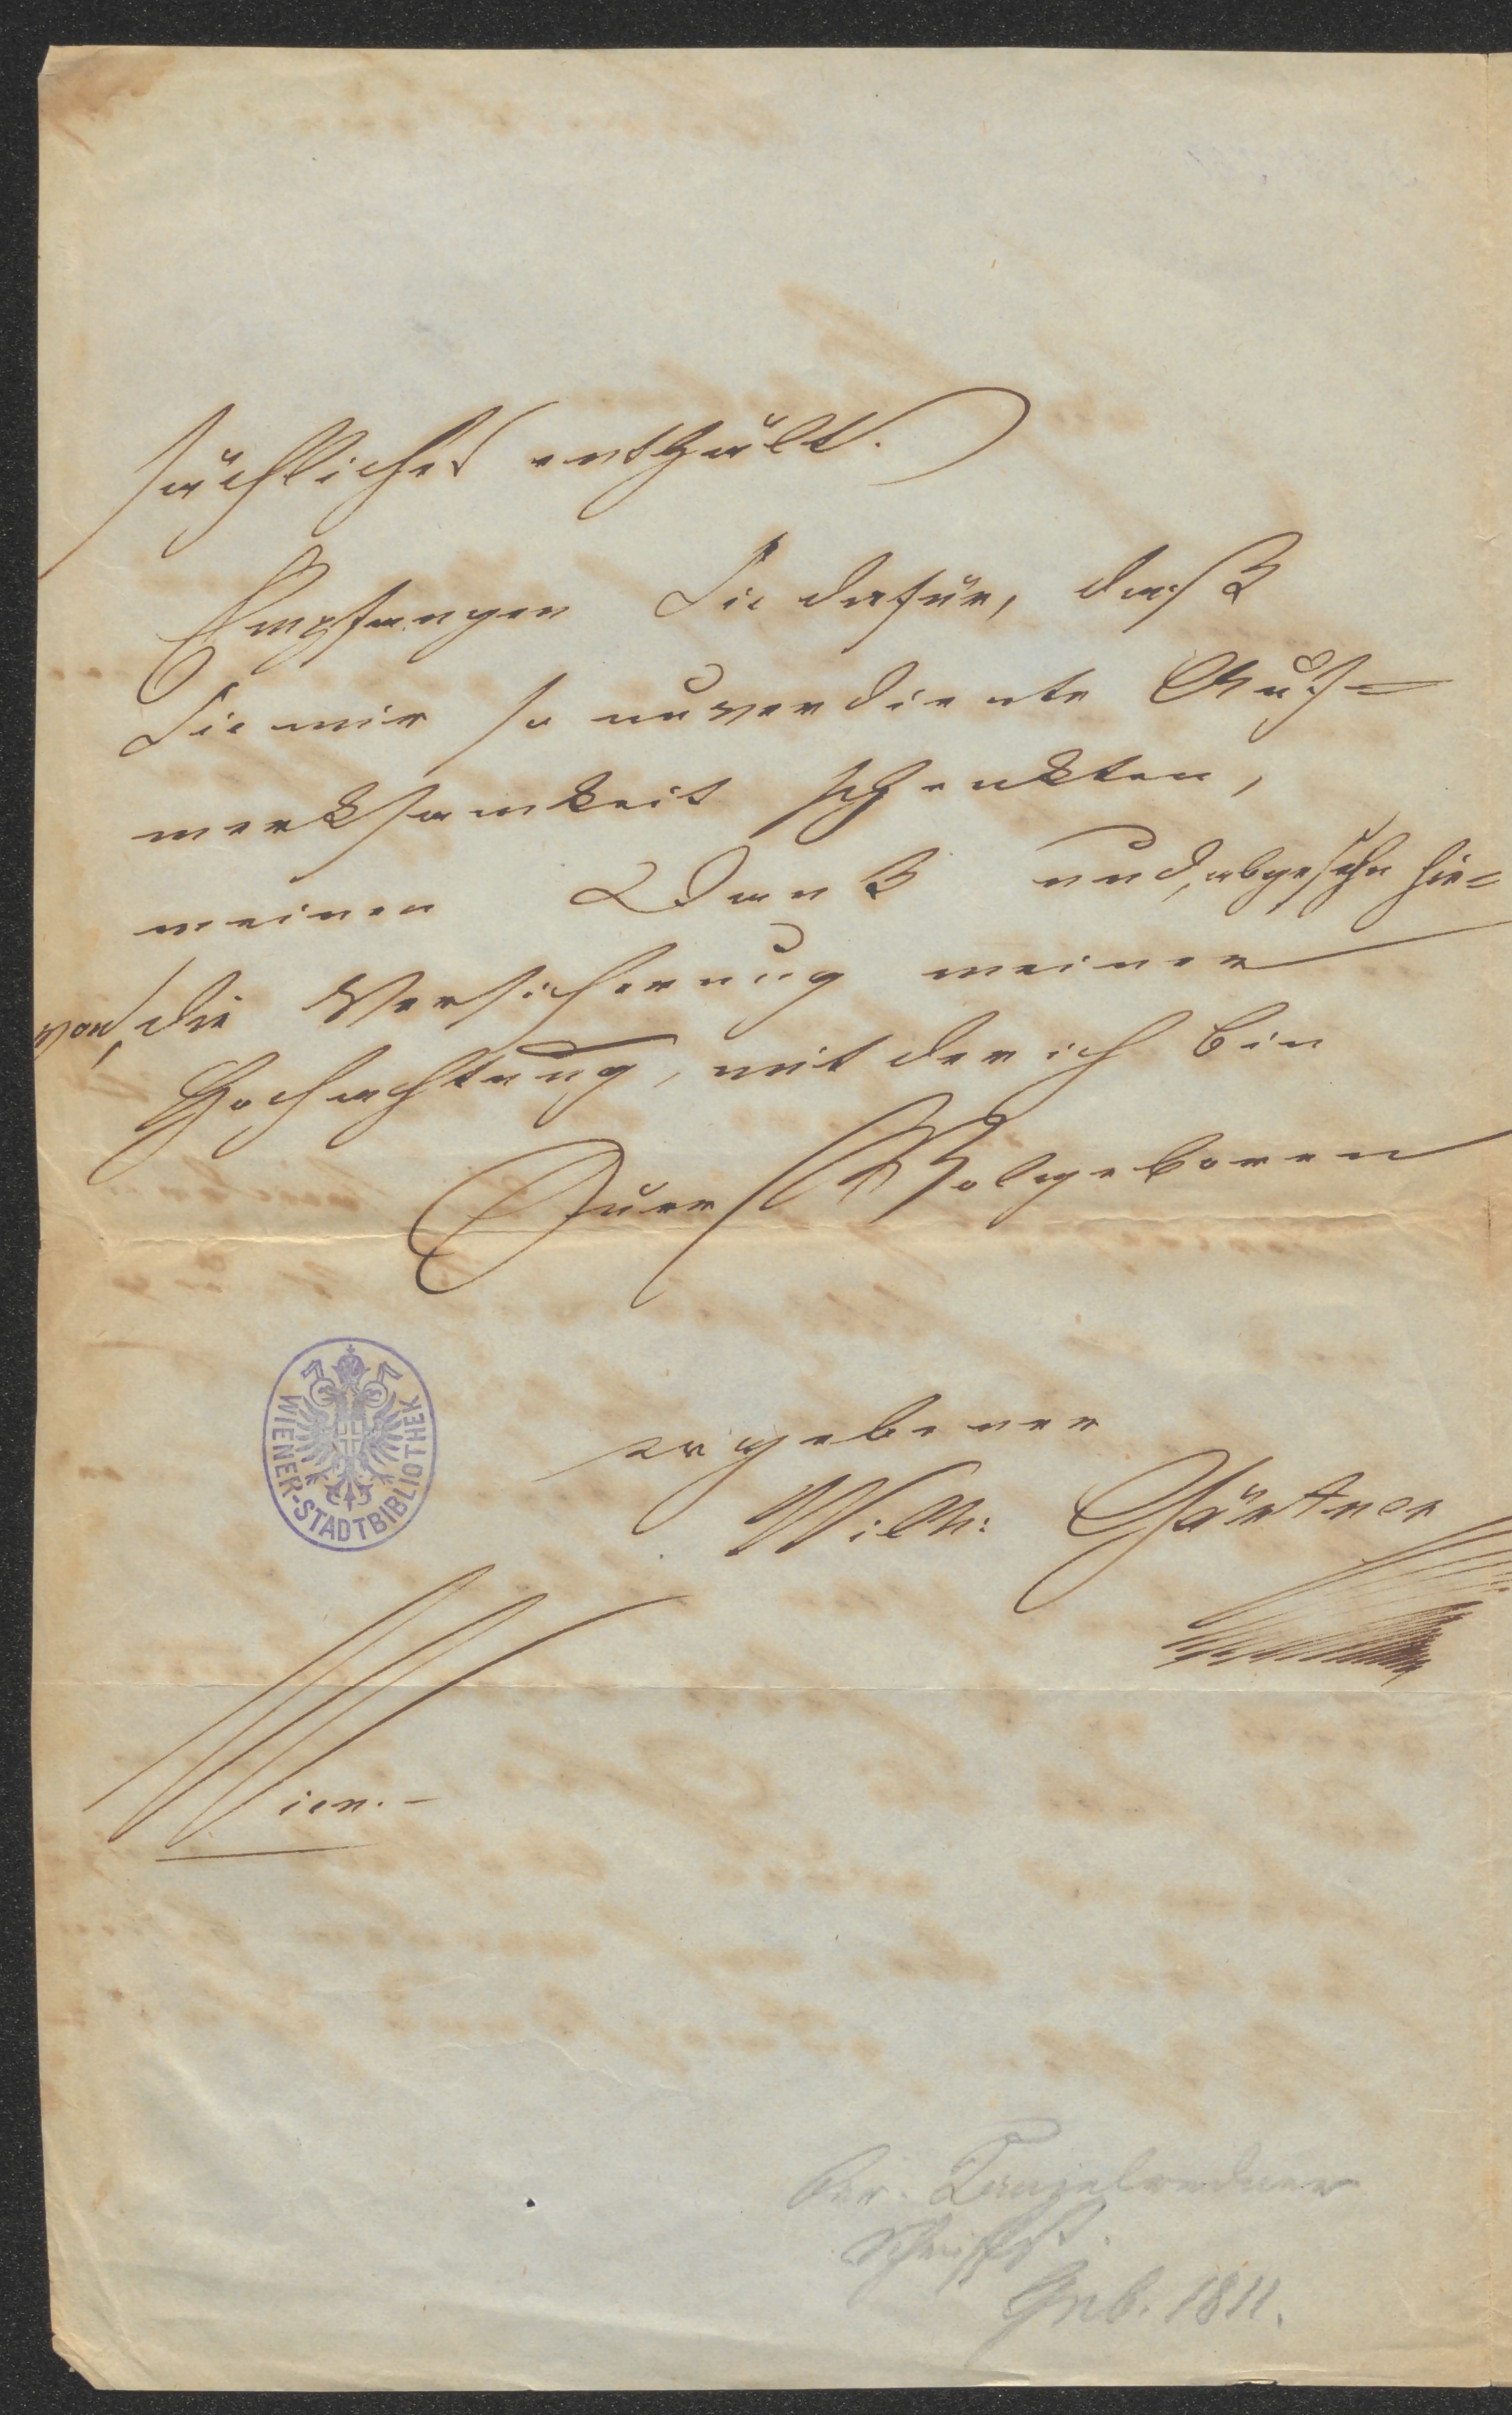 sächliches enthält.
Empfangen Sie dafür, daß
Sie mir so unverdiente Auf=
merksamkeit schenkten,
meinen Dank und, abgesehn hie=
von, die Versicherung meiner
Hochachtung, mit der ich bin
Euer Wolgeboren
ergebener
Wilh: Gärtner
Wien.-
WIENER-STADTBIBLIOTHEK
Ber. Kanzelredner
Schriftst.
Geb. 1811.